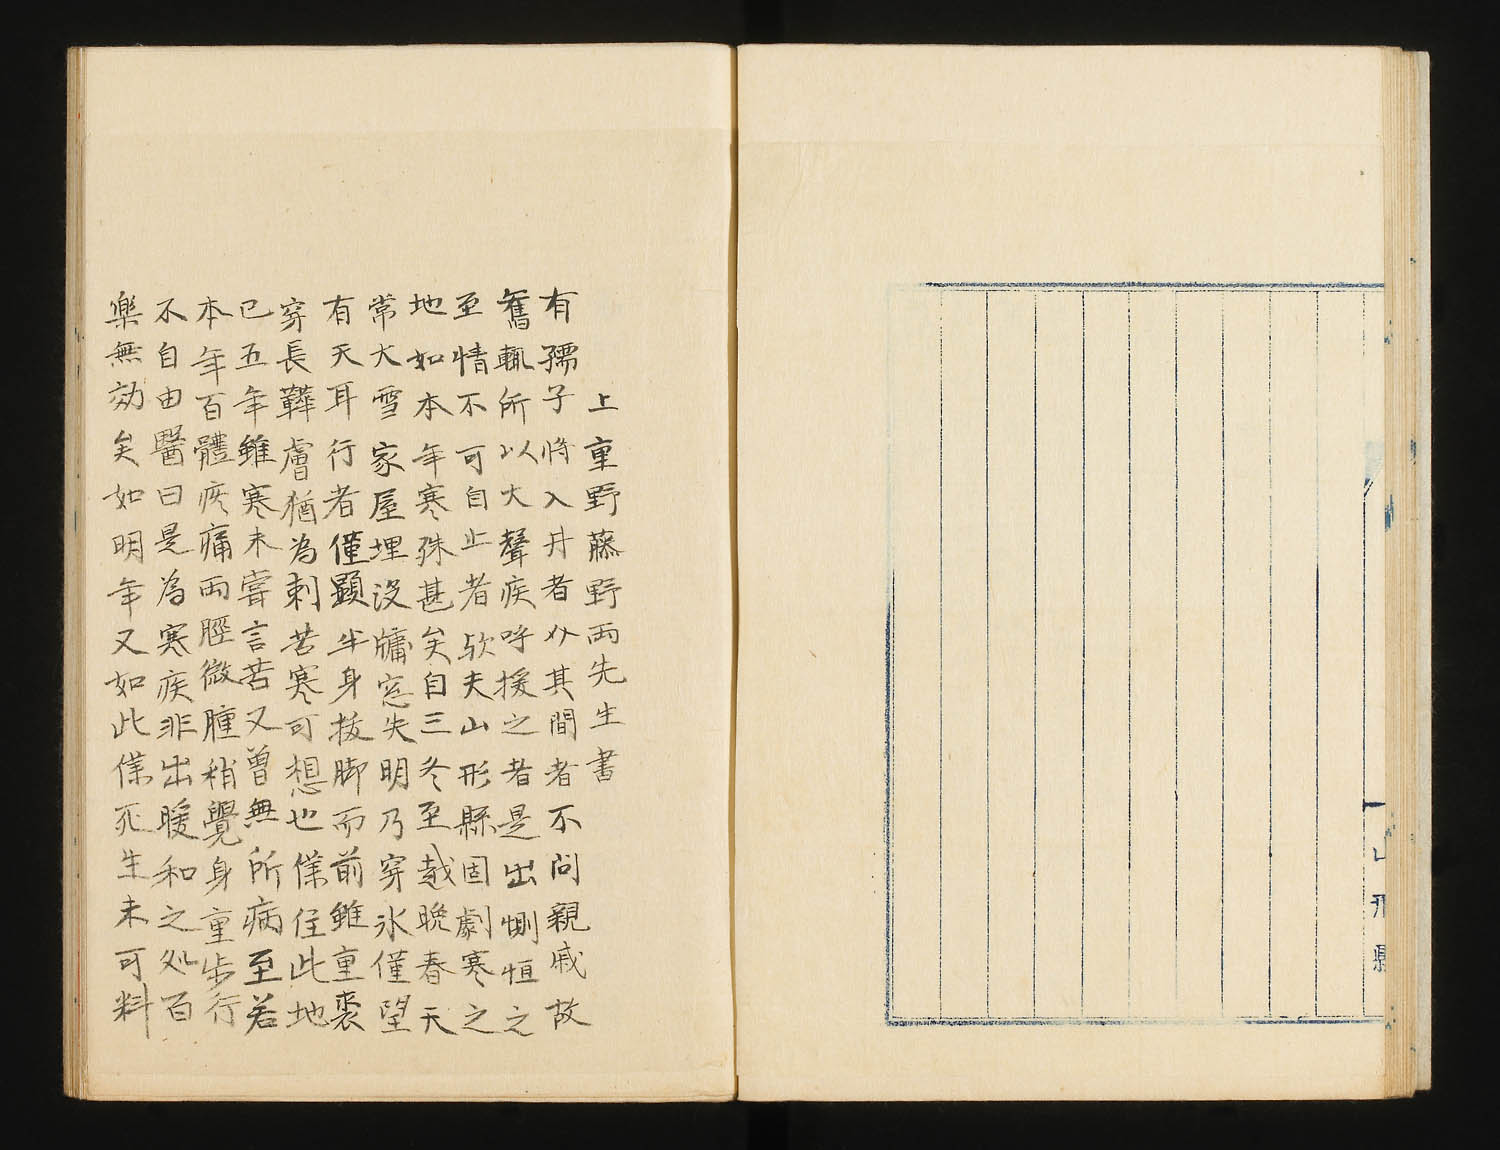 山形縣
上重野藤野両先生書
有孺子將入井者外其間者不問親戚故
舊輒所以大聲疾呼援之者是出惻怛之
至情不可自止者欤夫山形縣固劇寒之
地如本年寒殊甚矣自三冬至越晩春天
常大雪家屋埋沒牗窓失明乃穿氷僅望
有天耳行者僅顕半身抜脚而前雖重裘
穿長鞾膚猶為刺苦寒可想也僕住此地
已五年雖寒未嘗言苦又曽無所病至若
本年百體疾痛両脛微腫稍覺身重歩行
不自由醫曰是為寒疾非出暖和之処百
樂無効矣如明年又如此僕死生未可料